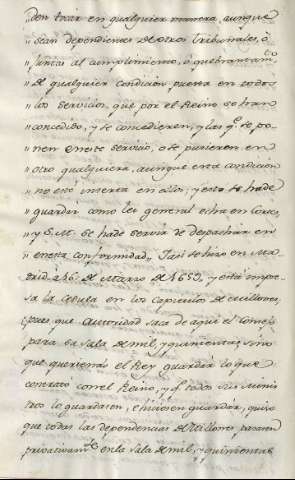 den tocar en qualquier manera, aunque
" sean dependientes de otros tribunales, ò
" Juntas al cumplimiento, ò quebrantam.to
" de qualquier condicion puesta en todos
" los servicios, que por el Reino se han
" concedido, y se concedieren, y las q.e se po-
" nen en este servicio, o se pusieren en
" otro qualquiera, aunque esta condicion
" no esté inserta en ellos; y esto se hade
" guardar como lei general echa en Cortes,
" y S. M. se hade servir de despachar en
" en esta conformidad, I asi se hizo en Ma-
drid à 16 de Marzo de 1659, y està impre-
sa la Cedula en los
pues que autoridad saca de aqui el Consejo
para la Sala de mil, y quinientas sino
que queriendo el Rey guardar lo que
contrato con el Reino, y q.e todos sus Minis
tros lo guardasen, e hiciesen guardar, quiso
que todas las dependencias de Millones pasasen
privativam.te en la Sala de mil, y quinientas